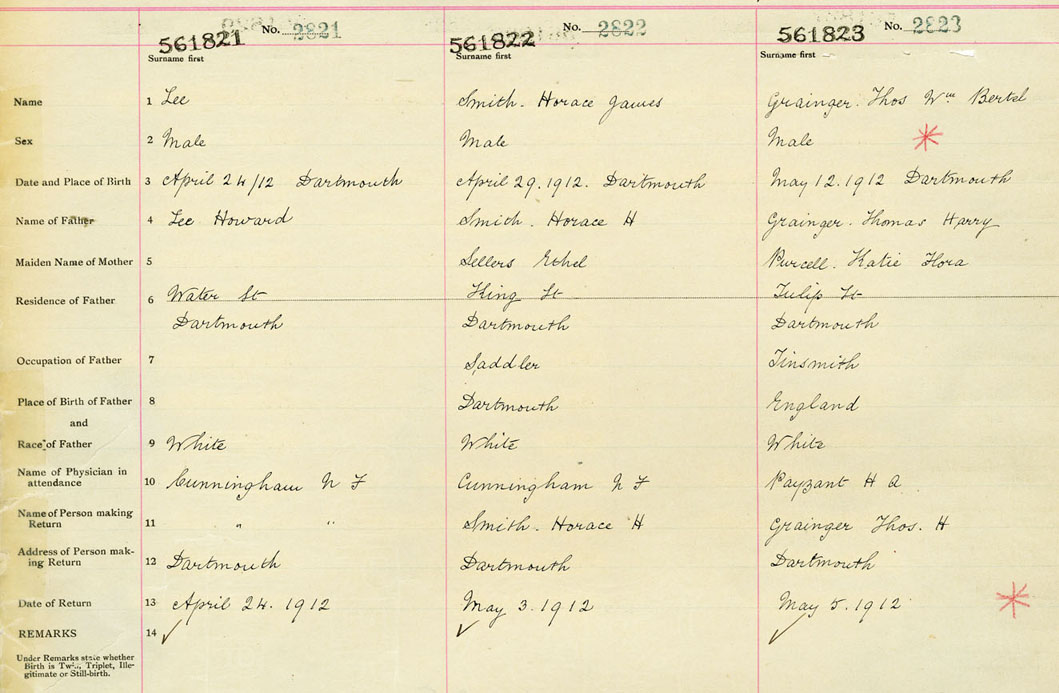 No. 2821 No. 2822 No. 2823
561821 561822 561823
Surname first Surname first Surname first
Name 1 Lee Smith. Horace James Grainger. Thos Wm Bertel
Sex 2 Male Male Male
Date and Place of Birth 3 April 24/12 Dartmouth April 29. 1912. Dartmouth May 12. 1912 Dartmouth
Name of Father 4 Lee Howard Smith. Horace H Grainger. Thomas Harry
Maiden Name of Mother 5 Sellers Ethel Purcell. Katie Flora
Residence of Father 6 Water St King St Tulip St
Dartmouth Dartmouth Dartmouth
Occupation of Father 7 Saddler Tinsmith
Place of Birth of Father 8 Dartmouth England
and
Race of Father 9 White White White
Name of Physician in
attendance 10 Cunningham N F Cunningham N F Payzant H A
Name of Person making
Return 11 " " Smith. Horace H Grainger Thos. H
Address of Person mak-
ing Return 12 Dartmouth Dartmouth Dartmouth
Date of Return 13 April 24. 1912 May 3. 1912 May 5. 1912
REMARKS 14 ✓ ✓ ✓
Under Remarks state whether
Birth is Twin, Triplet, Ille-
gitimate or Still-birth.